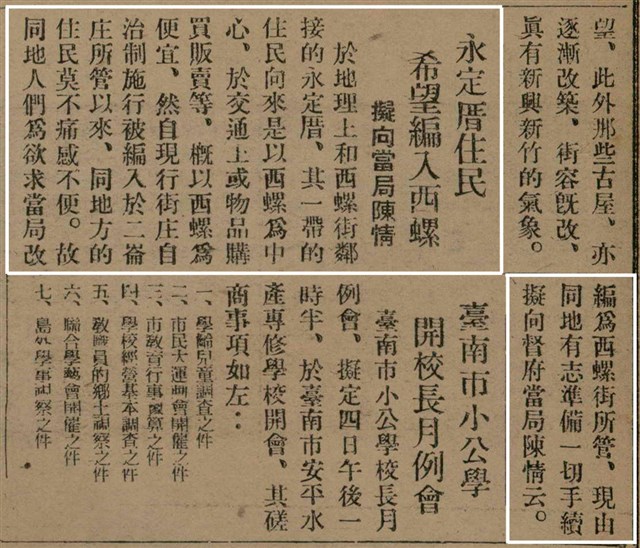 望、此外那些古屋、亦
逐漸改築、街容既改、
眞有新興新竹的氣象。
永定厝住民
希望編入西螺
擬向當局陳情
於地理上和西螺街鄰
接的永定厝、其一帶的
住民向來是以西螺爲中
心、於交通上或物品購
買販賣等、槪以西螺爲
便宜、然自現行街庄自
治制施行被編入於二崙
庄所管以來、同地方的
住民莫不痛感不便。故
同地人們爲欲求當局改
編爲西螺街所管、現由
同地有志準備一切手續
擬向督府當局陳情云。
臺南市小公學
開校長月例會
臺南市小公學校長月
例會、擬定四日午後一
時半、於臺南市安平水
產專修學校開會、其磋
商事項如左：
一、學齡兒童調查之件
二、市民大運動會開催之件
三、市敎育行事豫算之件
四、學校經營基本調查之件
五、敎職員的鄕土視察之件
六、聯合學藝會開催之件
七、島外學事視察之件